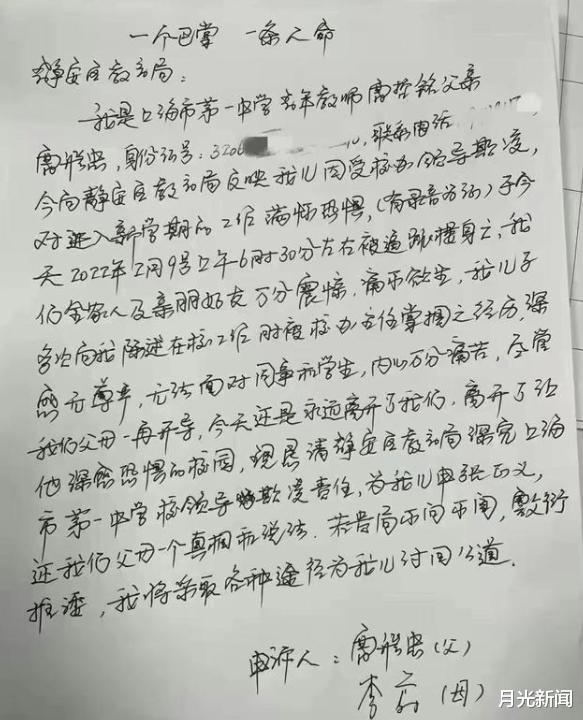 一个巴掌 一条人命
静安区教育局：
我是上海市第一中学青年教师高哲铭父亲
身份证号：3206 联系电话
今向静安区教育局反映我儿因受校办领导欺凌，
对进入新学期的工作满怀恐惧，(有录音为证)于今
天2022年2月9号上午6时30分左右被逼跳楼身亡，我
们全家人及亲朋好友万分震惊，痛不欲生，我儿子
多次向我陈述在校工作时被校办主任掌掴之经历，深
感无尊严，无法面对同事和学生，内心万分痛苦，尽管
我们父母一再开导，今天还是永远离开了我们，离开了让
他深感恐惧的校园，现恳请静安区教育局深究上海
市第一中学校领导欺凌责任，为我儿申张正义，
还我们父母一个真相和说法．若贵局不问不闻，敷衍
推诿，我将采取各种途径为我儿讨回公道．
申诉人：(父)
(母)
月光新闻